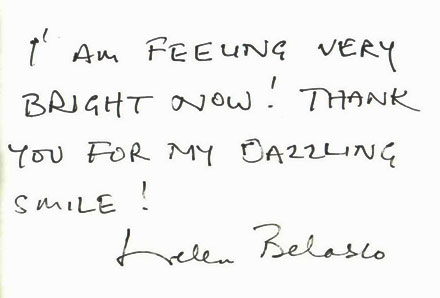 I' AM FEELING VERY
BRIGHT NOW! THANK
YOU FOR MY DAZZLING
SMILE!
Helen Belasco